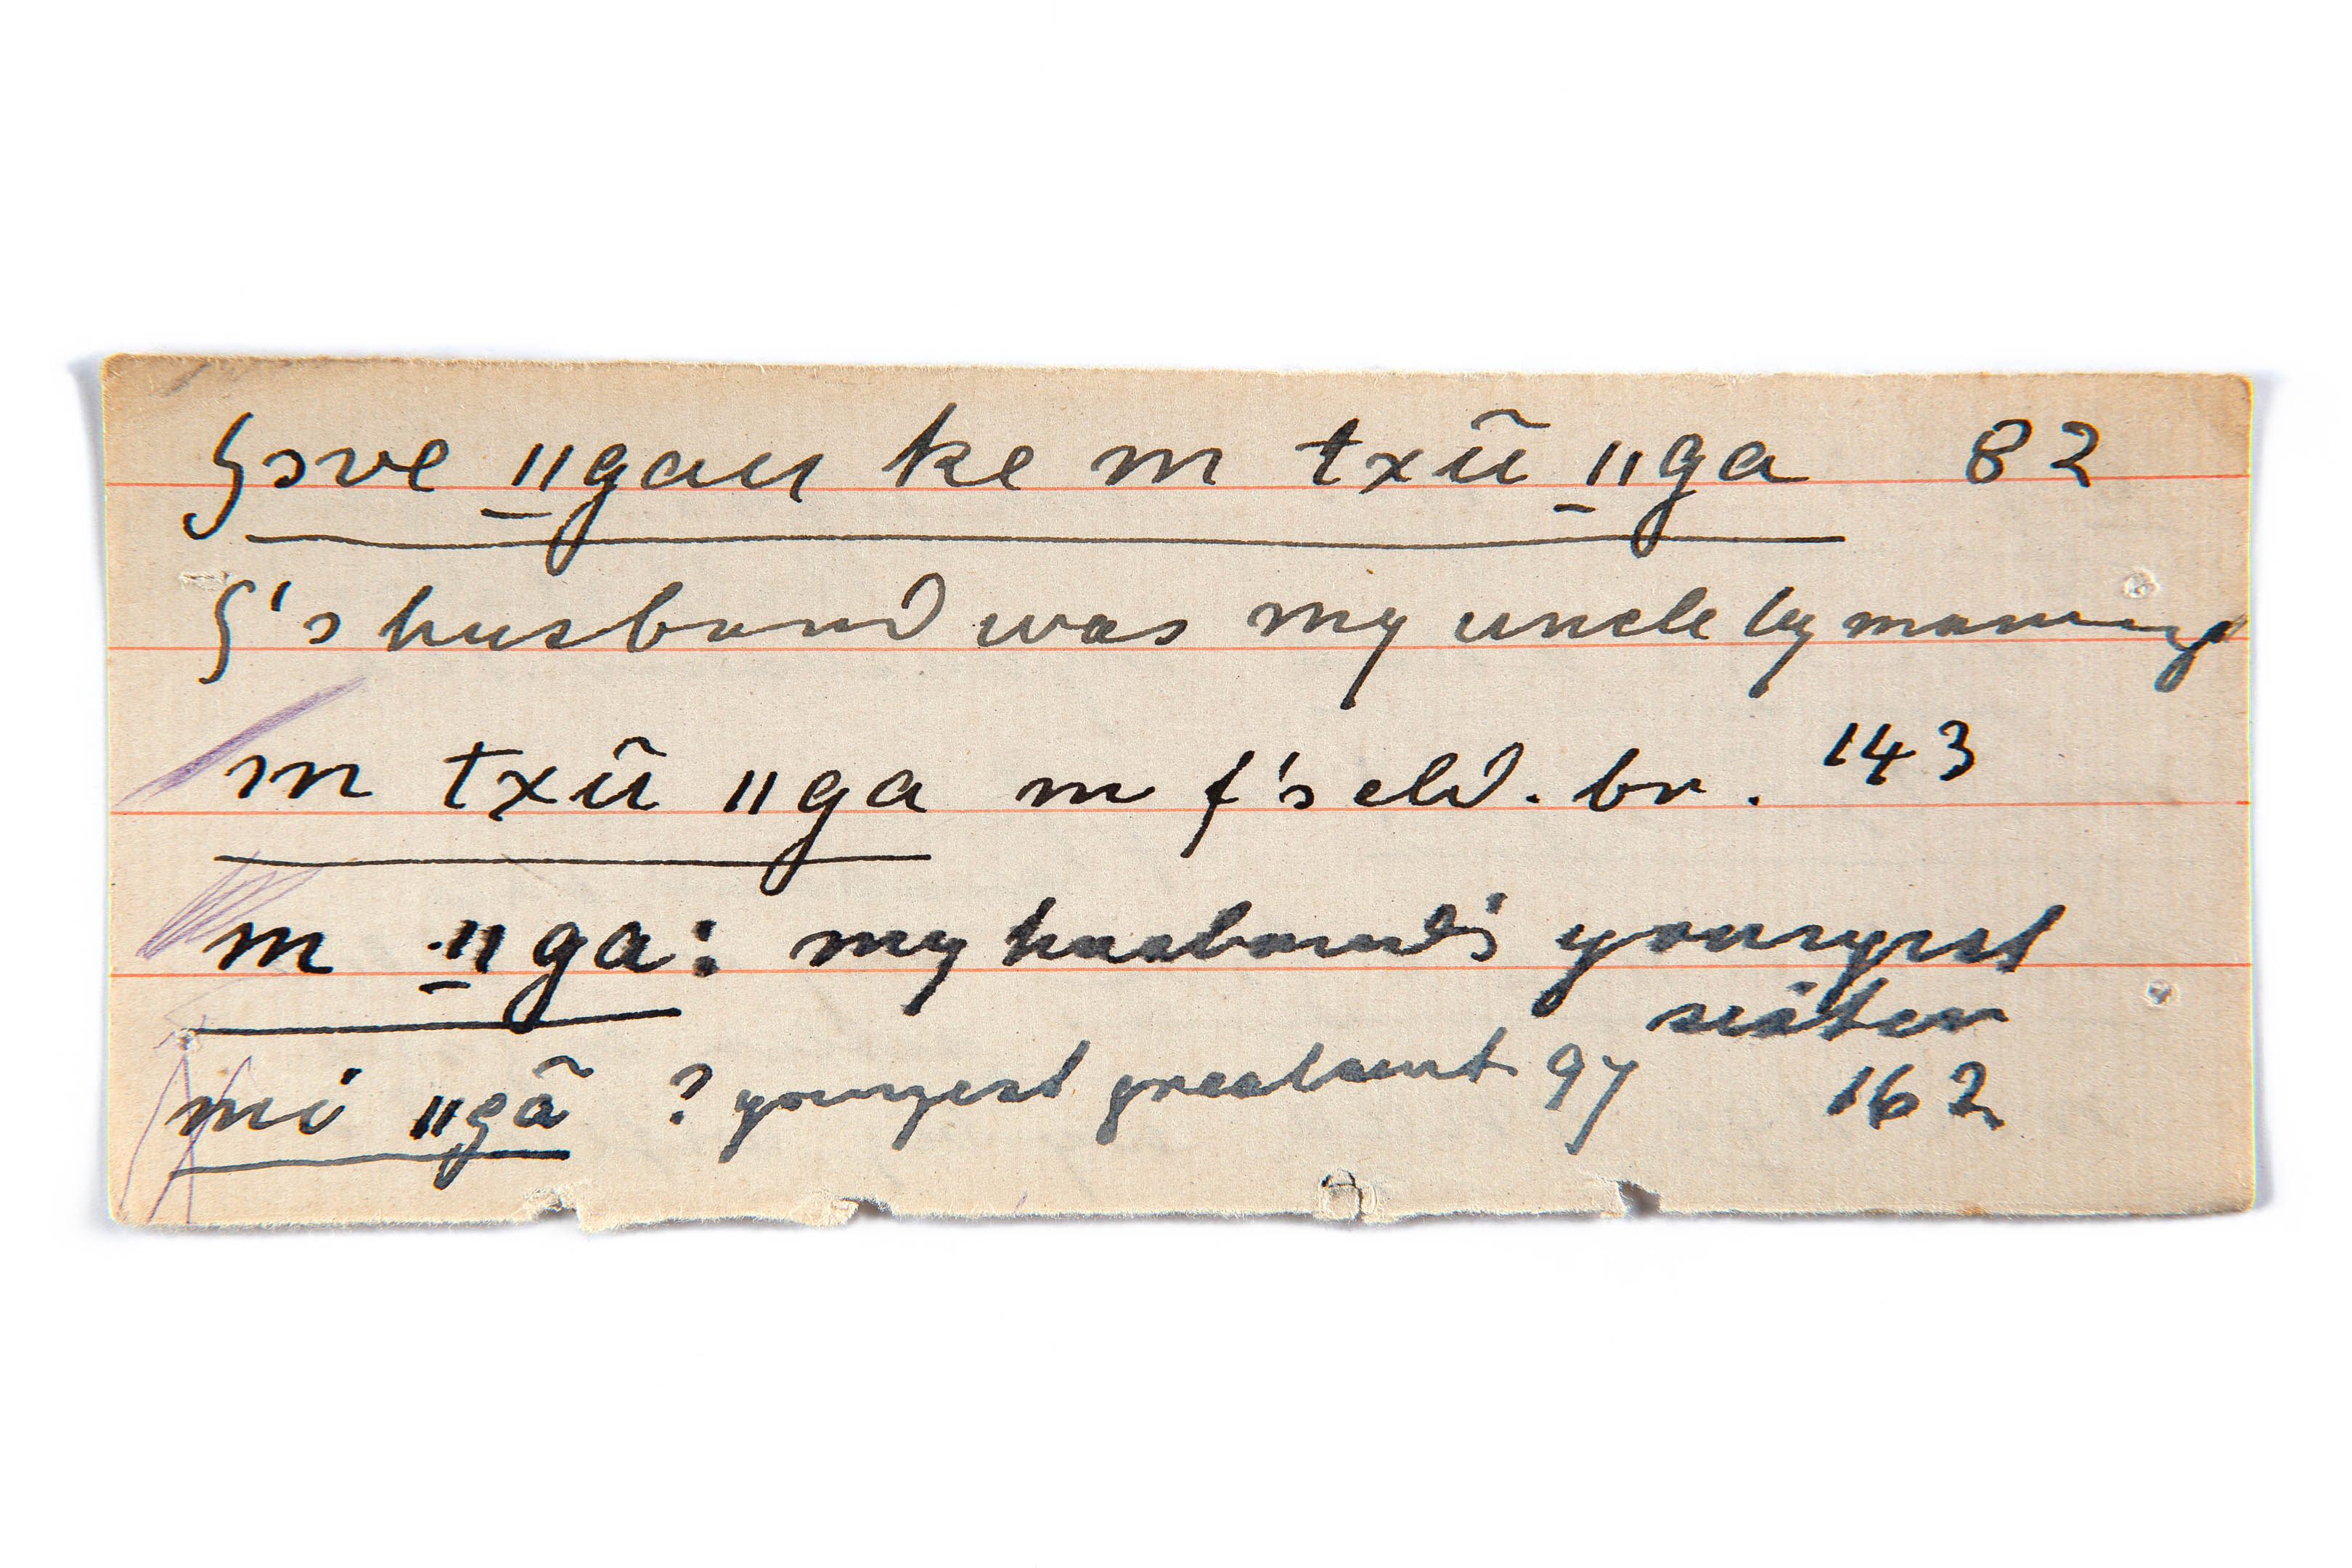 ʕɔve ǁgau ke m txũ ǁga 82
ʕ's husband was my uncle by marriage
m txũ ǁga m f's eld. br. 143
m ǁga: my husband's youngest
sister
mi ǁgã ? youngest greataunt 97 162